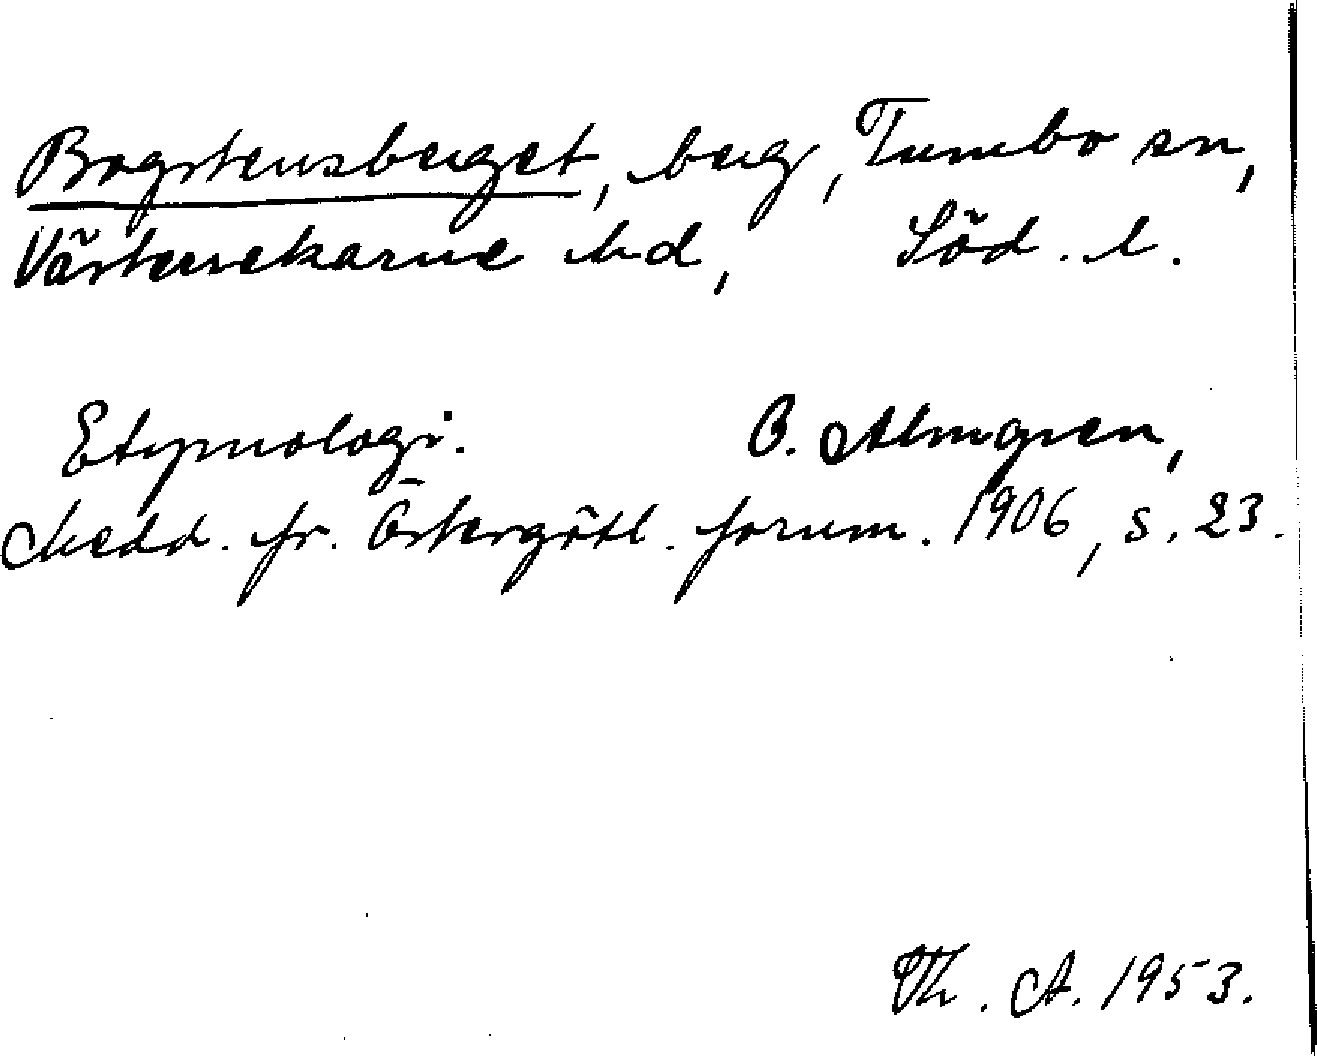 Bogstensberget, berg, Tumbo sn,
Västerrekarne hd, Söd. l.
Etymologi. O. Almgren,
Medd. fr. Östergötl. fornm. 1906, s. 23.
Th. A. 1953.